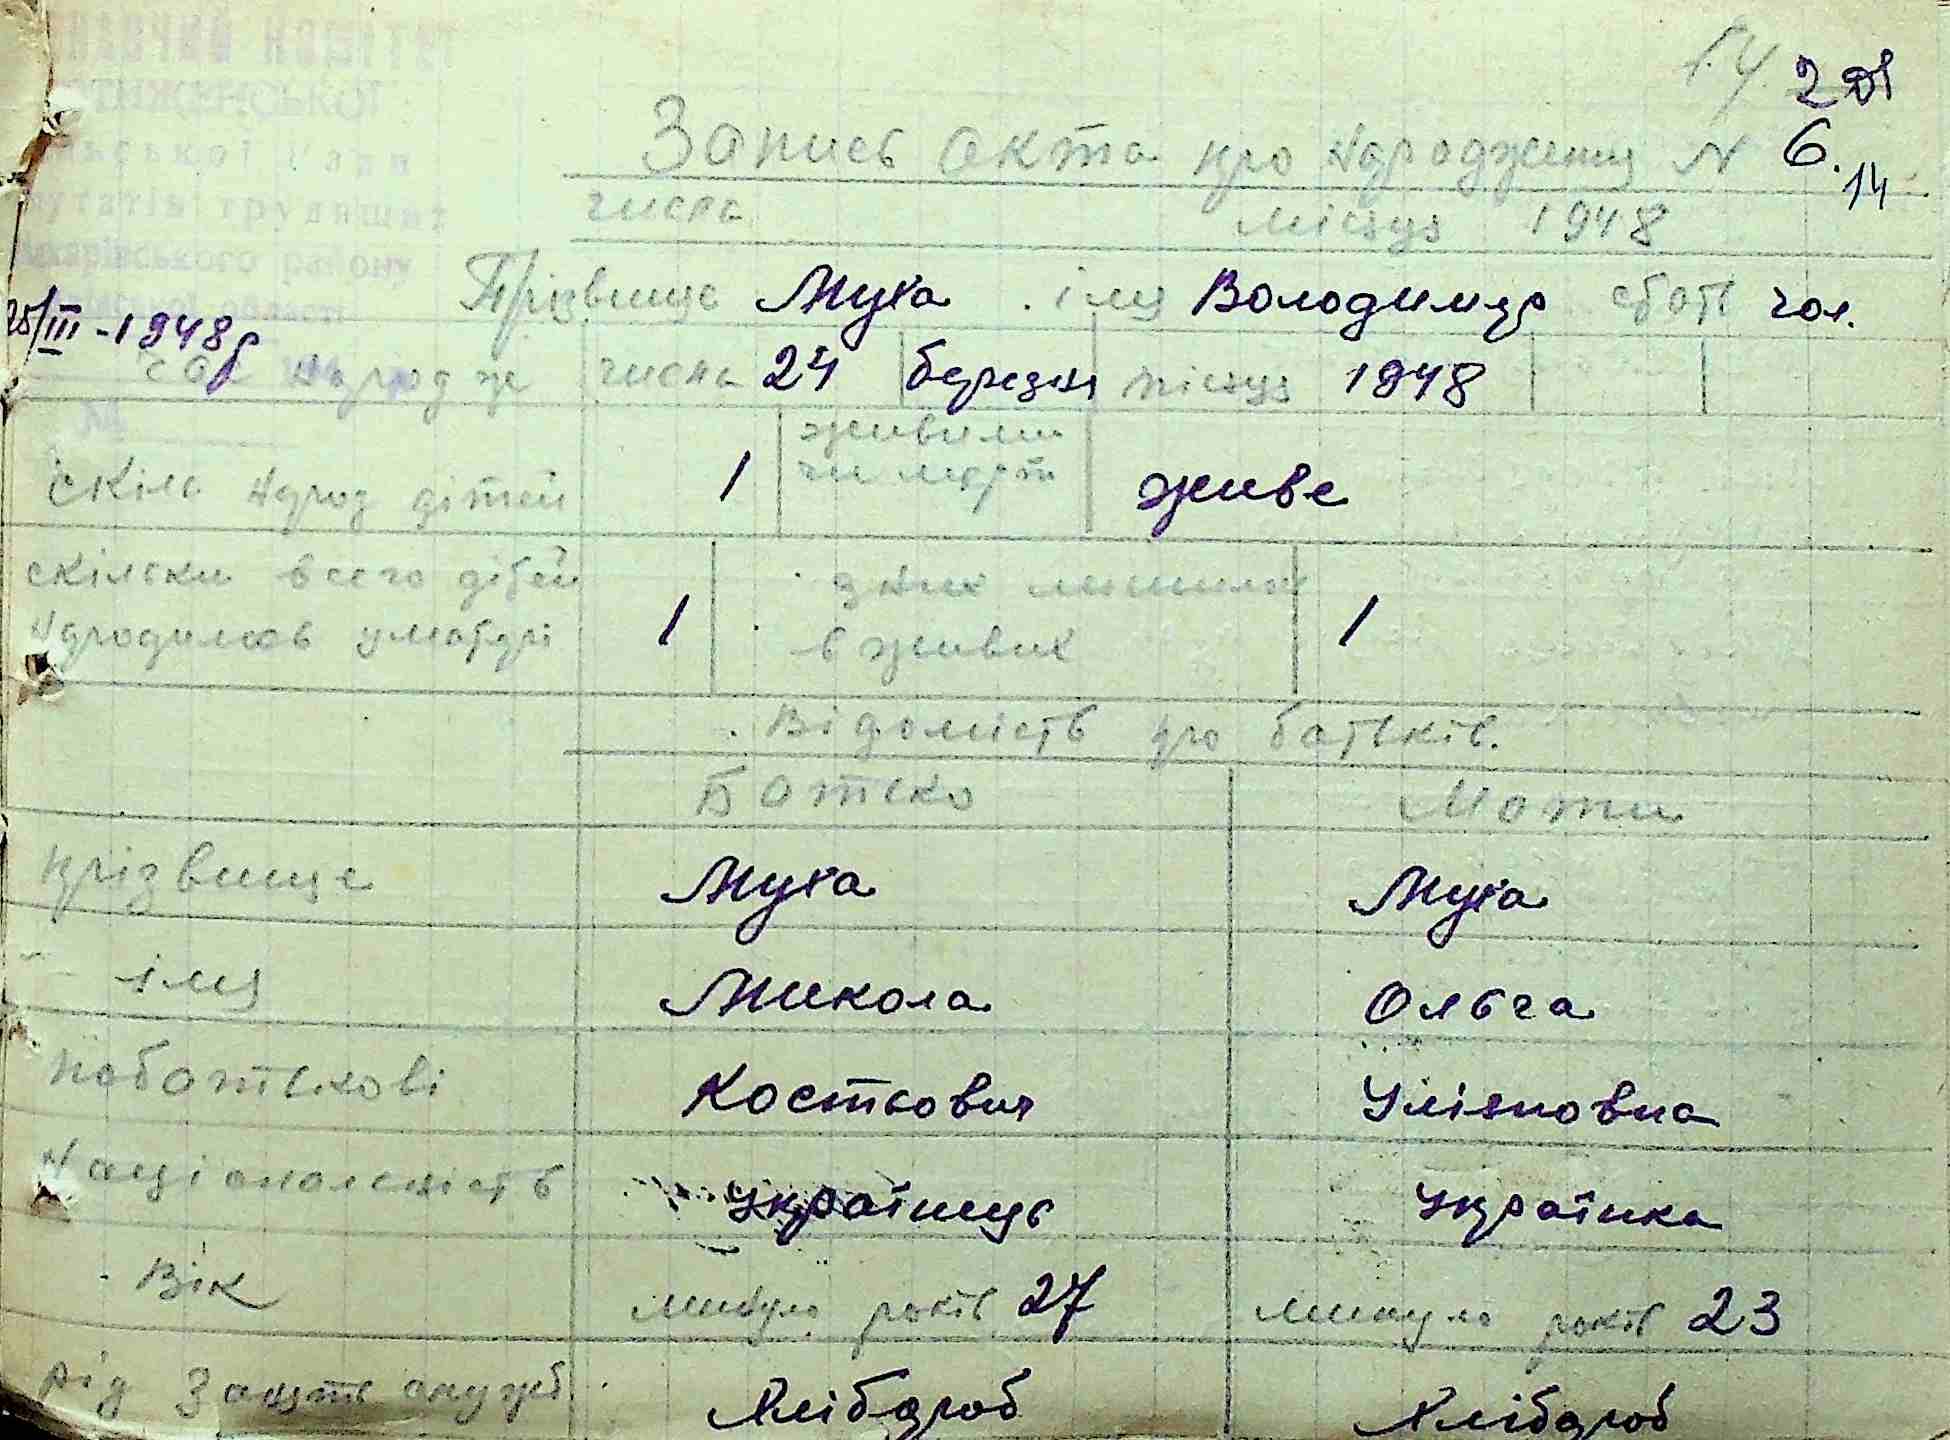 14 20
НАВЧИЙ КОМІТЕТ
ОТИЖЕНСЬКОЇ
сільської Ради
путатів трудящих
Макарівського району
Київської області
Запись акта про народження N 6.
14
числа місяця 1948
Прізвище Муха імя Володимир стать чол.
25/III-1948р
час народж числа 24 березня місяця 1948
скіль народ дітей 1 живими чи мертв живе
скільки всего дітей народилось у матері 1 з них лишилось в живих 1
Відомість про батьків.
Батько Мати
прізвище Муха Муха
імя Микола Ольга
побатькові Костьович Улізновна
Національність Українець Українка
Вік минуло років 27 минуло років 23
рід занять служб. Хлібороб Хлібороб